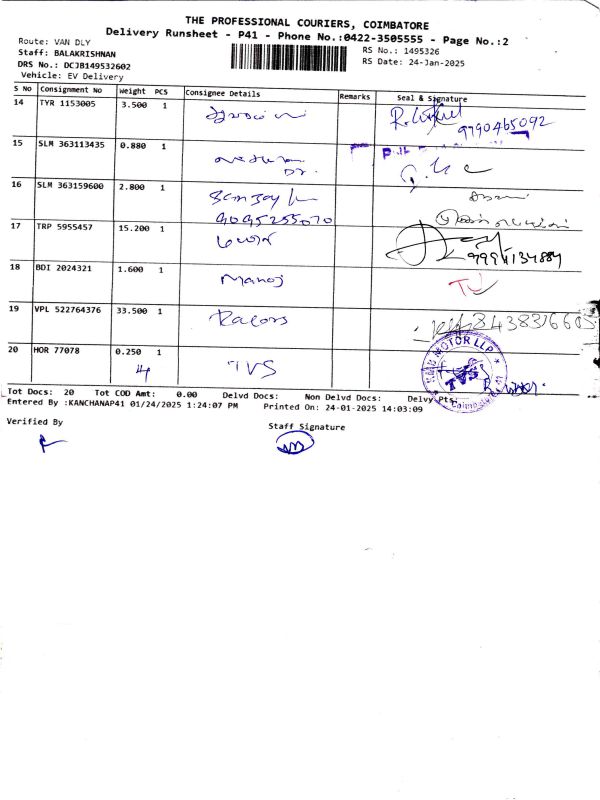 THE PROFESSIONAL COURIERS, COIMBATORE
Delivery Runsheet - P41 - Phone No.:0422-3505555 - Page No.:2
Route: VAN DLY
RS No.: 1495326
Staff: BALAKRISHNAN
RS Date: 24-Jan-2025
DRS No.: DCJB149532602
Vehicle: EV Delivery
S No Consignment No Weight PCS Consignee Details Remarks Seal & Signature
14 TYR 1153005 3.500 1
9790465092
15 SLM 363113435 0.880 1
16 SLM 363159600 2.800 1
9095255070
17 TRP 5955457 15.200 1
18 BDI 2024321 1.600 1 Manoj
19 VPL 522764376 33.500 1
20 HOR 77078 0.250 1 TVS
MOTOR LLP
TVS
Tot Docs: 20 Tot COD Amt: 0.00 Delvd Docs: Non Delvd Docs: Delvy Pts:
Entered By :KANCHANAP41 01/24/2025 1:24:07 PM Printed On: 24-01-2025 14:03:09
Verified By
Staff Signature